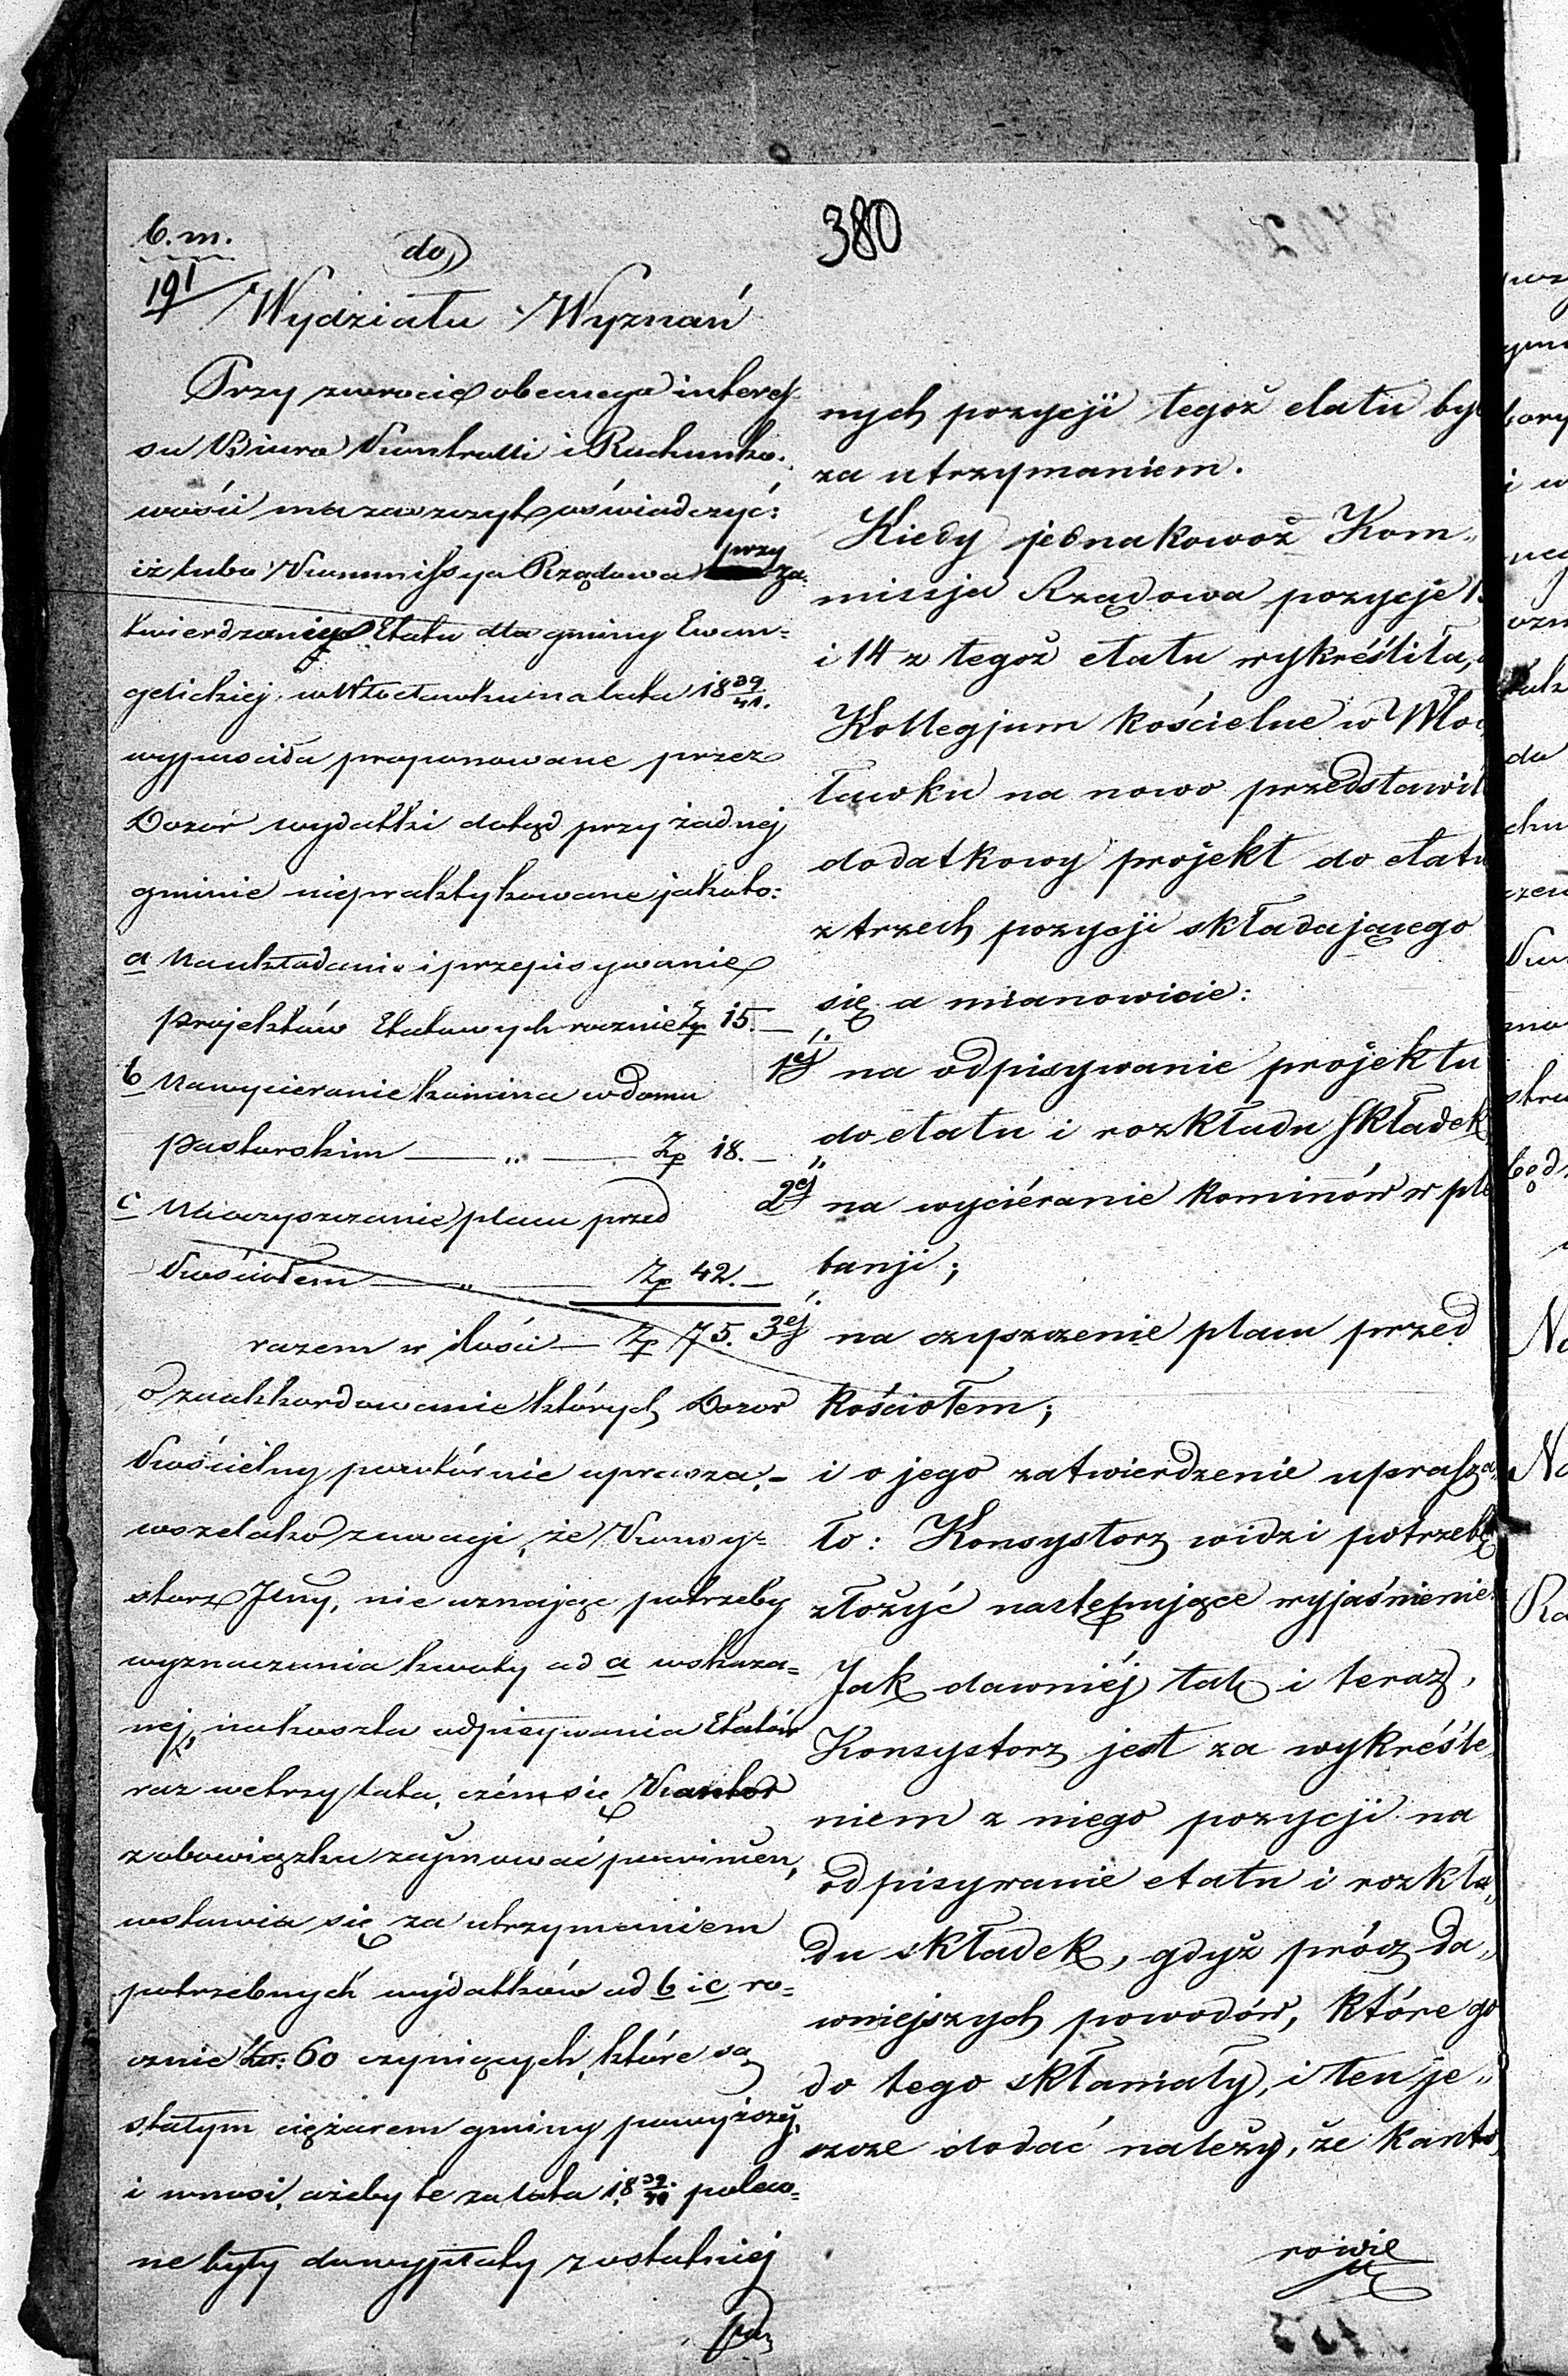 380
b. m.
191
do
Wydziału Wyznań
Przy zwrocie obecnego interes-
su Biuro Kontrolli i Rachunko-
wości ma zaszczyt oświadczyć:
iż lubo Kommissya Rządowa przy za-
twierdzeniu Etatu dla gminy Ewan=
gelickiej w Włocławku na lata 18 39/41.
wypuściła proponowane przez
Dozór wydatki dotąd przy żadnej
gminie niepraktykowane jakoto:
a Na układanie i przepisywanie
projektów Etatowych rocznie Zp 15.—
b Na wycieranie komina w domu
pastorskim — „ — Zp 18.—
c Na oczyszczanie placu przed
Kościołem — „ — Zp 42.—
razem w ilości — Zp 75.
o zaakkordowanie których Dozor
Kościelny powtórnie uprasza,-
wszelako z uwagi, że Konsy=
storz Jlny, nie uznając potrzeby
wyznaczenia kwoty ad a wskaza=
nej, na koszta odpisywania Etatów
raz we trzy lata, czém się Kantor
z obowiązku zajmować powinien,
wstawia się za utrzymaniem
potrzebnych wydatków ad b i c ro=
cznie 60 czyniących, które są
stałym ciężarem gminy powyższej,
i wnosi, ażeby te za lata 18 39/41 poleco=
ne były do wypłaty z ostatniej
po
nych pozycji tegoż etatu był
za utrzymaniem.
Kiedy jednakowoż Kom„
missja Rządowa pozycje
i 14 z tegoż etatu wykréśliła,
Kollegjum kościelne w Włoc
ławku na nowo przedstawił
dodatkowy projekt do etatu
z trzech pozycji składającego
się a mianowicie:
1éj na odpisywanie projektu
do etatu i rozkładu składek
2éj na wyciéranie kominów w ple
banji;
3éj na czyszczenie placu przed
kościołem;
i o jego zatwierdzenie uprasza„
ło: Konsystorz widzi potrzebę
złożyć następujące wyjaśnienie.
Jak dawniéj tak i teraz,
Konsystorz jest za wykréśle„
niem z niego pozycji na
odpisywanie etatu i rozkła„
du składek, gdyż prócz da„
wniejszych powodów, które go
do tego skłaniały, i ten je„
szcze dodać należy, że kanto
rowie